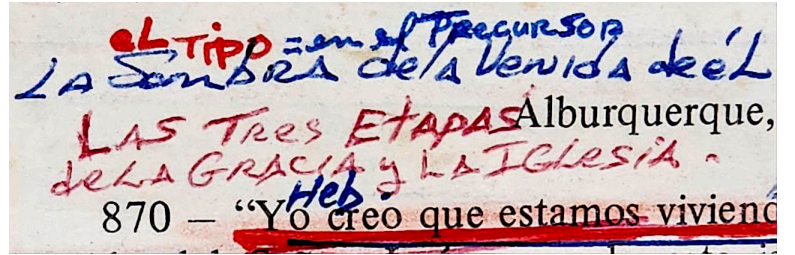 eL Tipo = en el Precursor
LA SomBRA de la Venida de él
LAS TRes EtAPAS Alburquerque,
de LA GRACIA y LA IGlesiA.
Heb.
870 – “Yo creo que estamos viviend